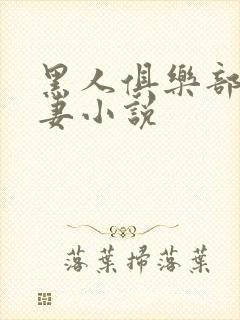 黑人俱樂部
妻小説
落葉掃落葉